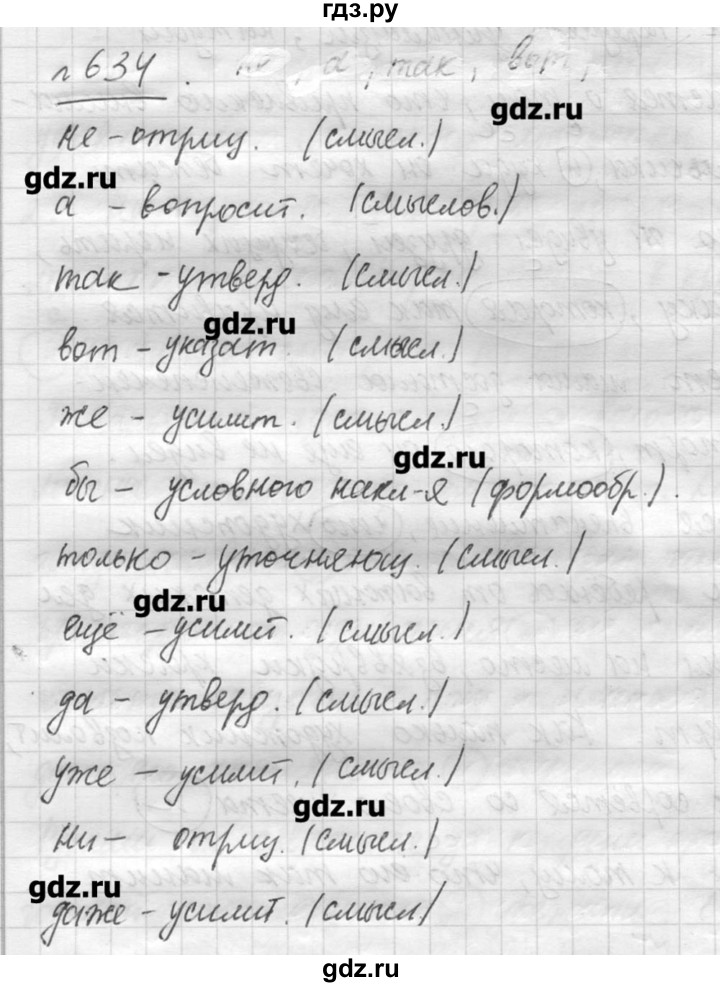 гдз.ру
№634 . а, так, вот,
gdz.ru
не - отриц. (смысл.)
gdz.ru
а - вопросит. (смыслов.)
так - утверд. (смысл.)
gdz.ru
вот - указат. (смысл.)
же - усилит. (смысл.)
gdz.ru
бы - условного накл-я (формообр.).
только - уточняющ. (смысл.)
gdz.ru
ещё - усилит. (смысл.)
да - утверд. (смысл.)
уже - усилит. (смысл.)
gdz.ru
ни - отриц. (смысл.)
gdz.ru
даже - усилит. (смысл)
gdz.ru